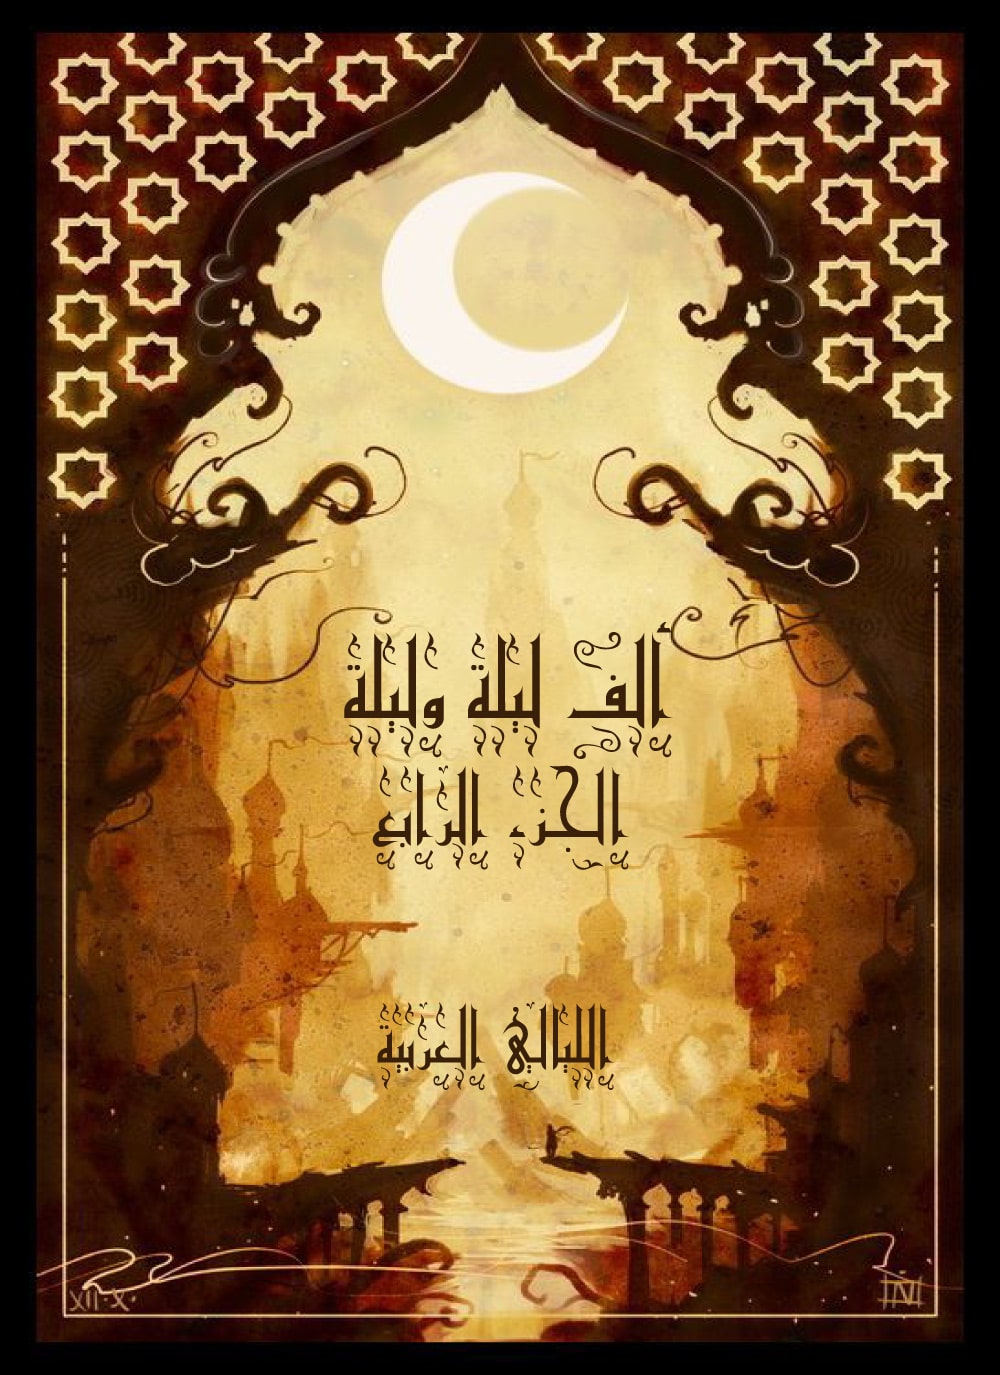 ألف ليلة وليلة
الجزء الرابع
الليالي العربية
XII·X·